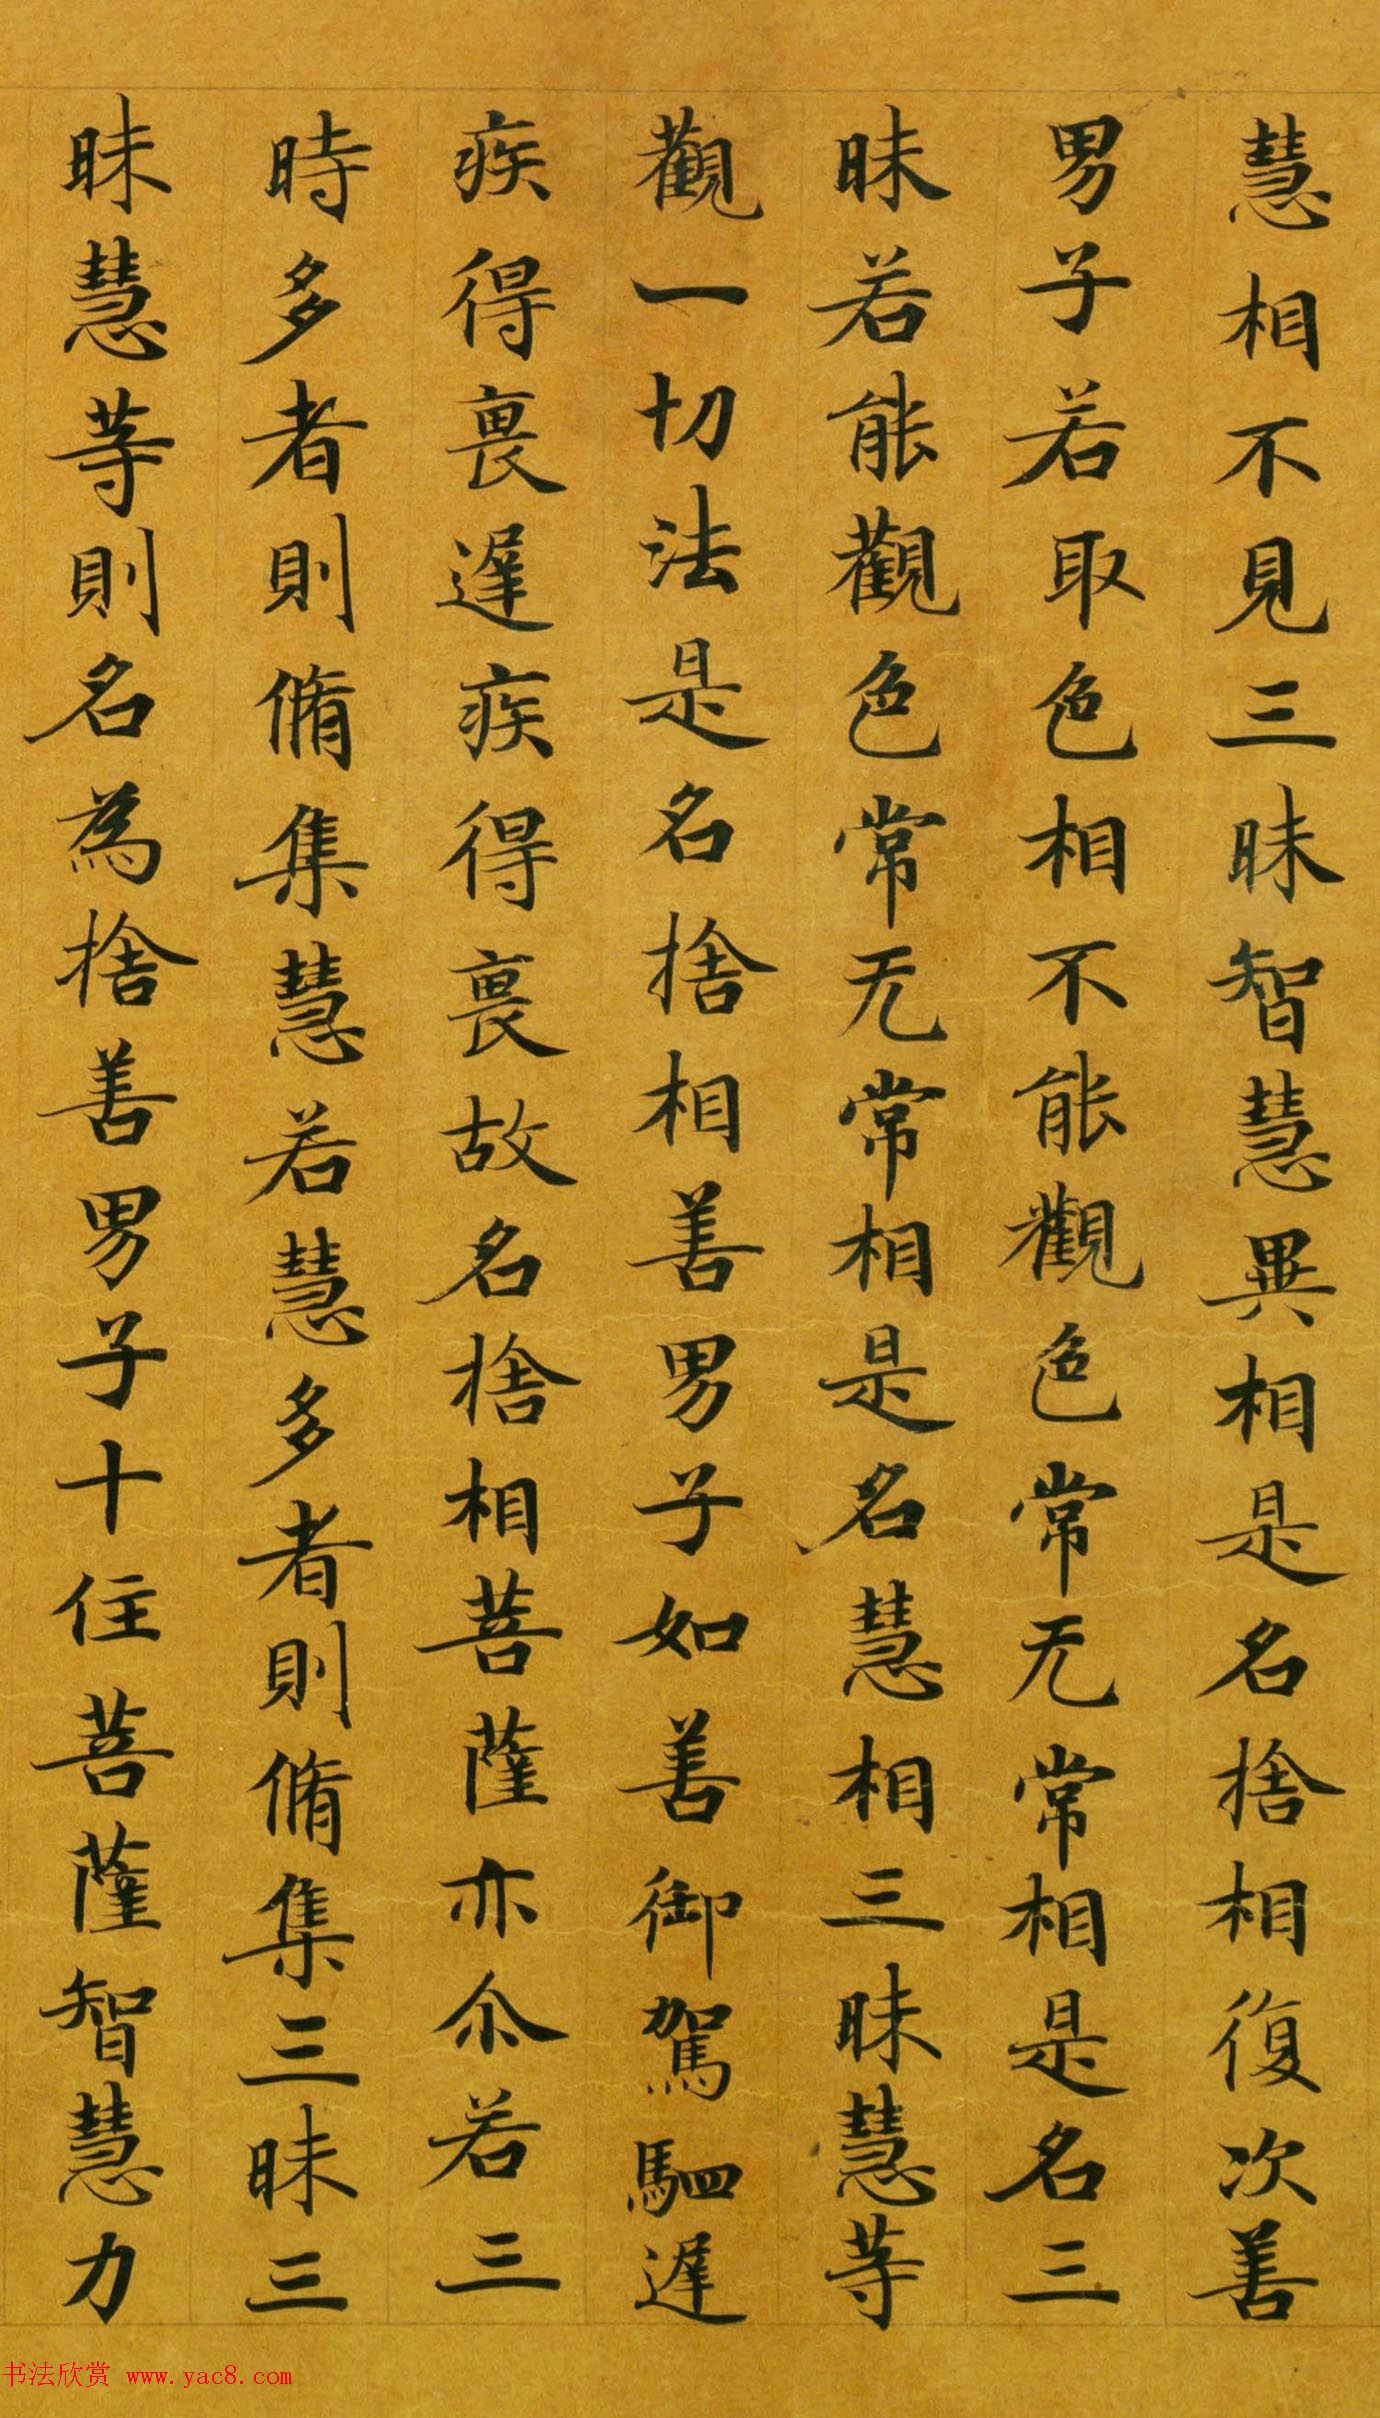 慧相不見三昧智慧異相是名捨相復次善
男子若取色相不能觀色常无常相是名三
昧若能觀色常无常相是名慧相三昧慧等
觀一切法是名捨相善男子如善御駕駟遲
疾得㽵遲疾得㽵故名捨相菩薩亦尒若三
時多者則脩集慧若慧多者則脩集三昧三
昧慧等則名為捨善男子十住菩薩智慧力
书法欣赏 www.yac8.com